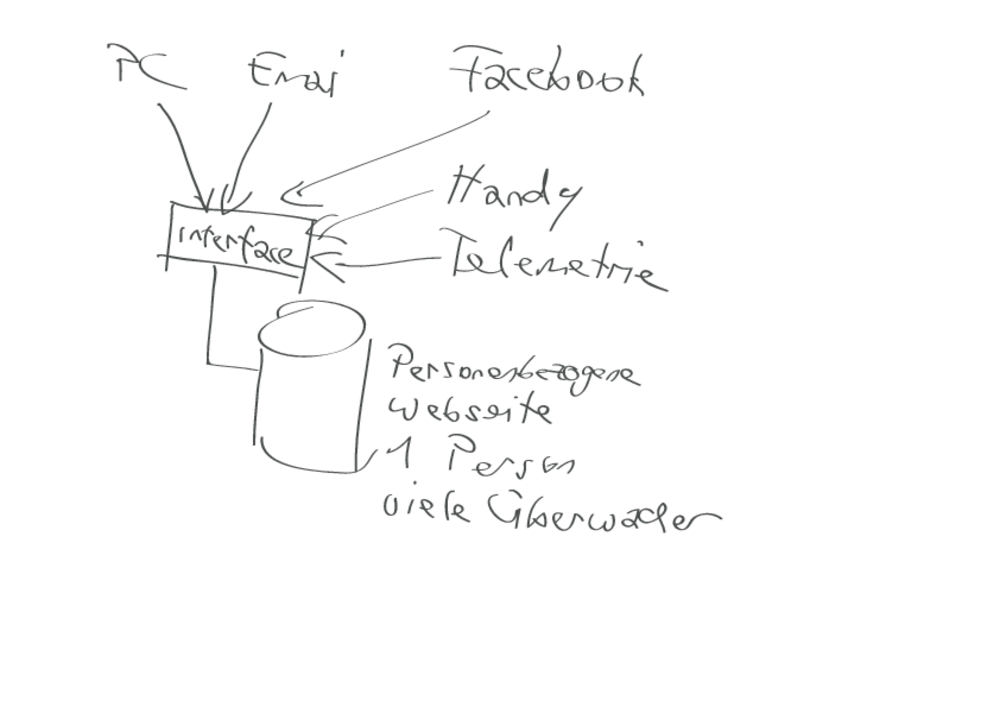 PC Emai Facebook
Handy
interface
Telemetrie
Personenbezogene
Webseite
1 Person
viele Überwacher